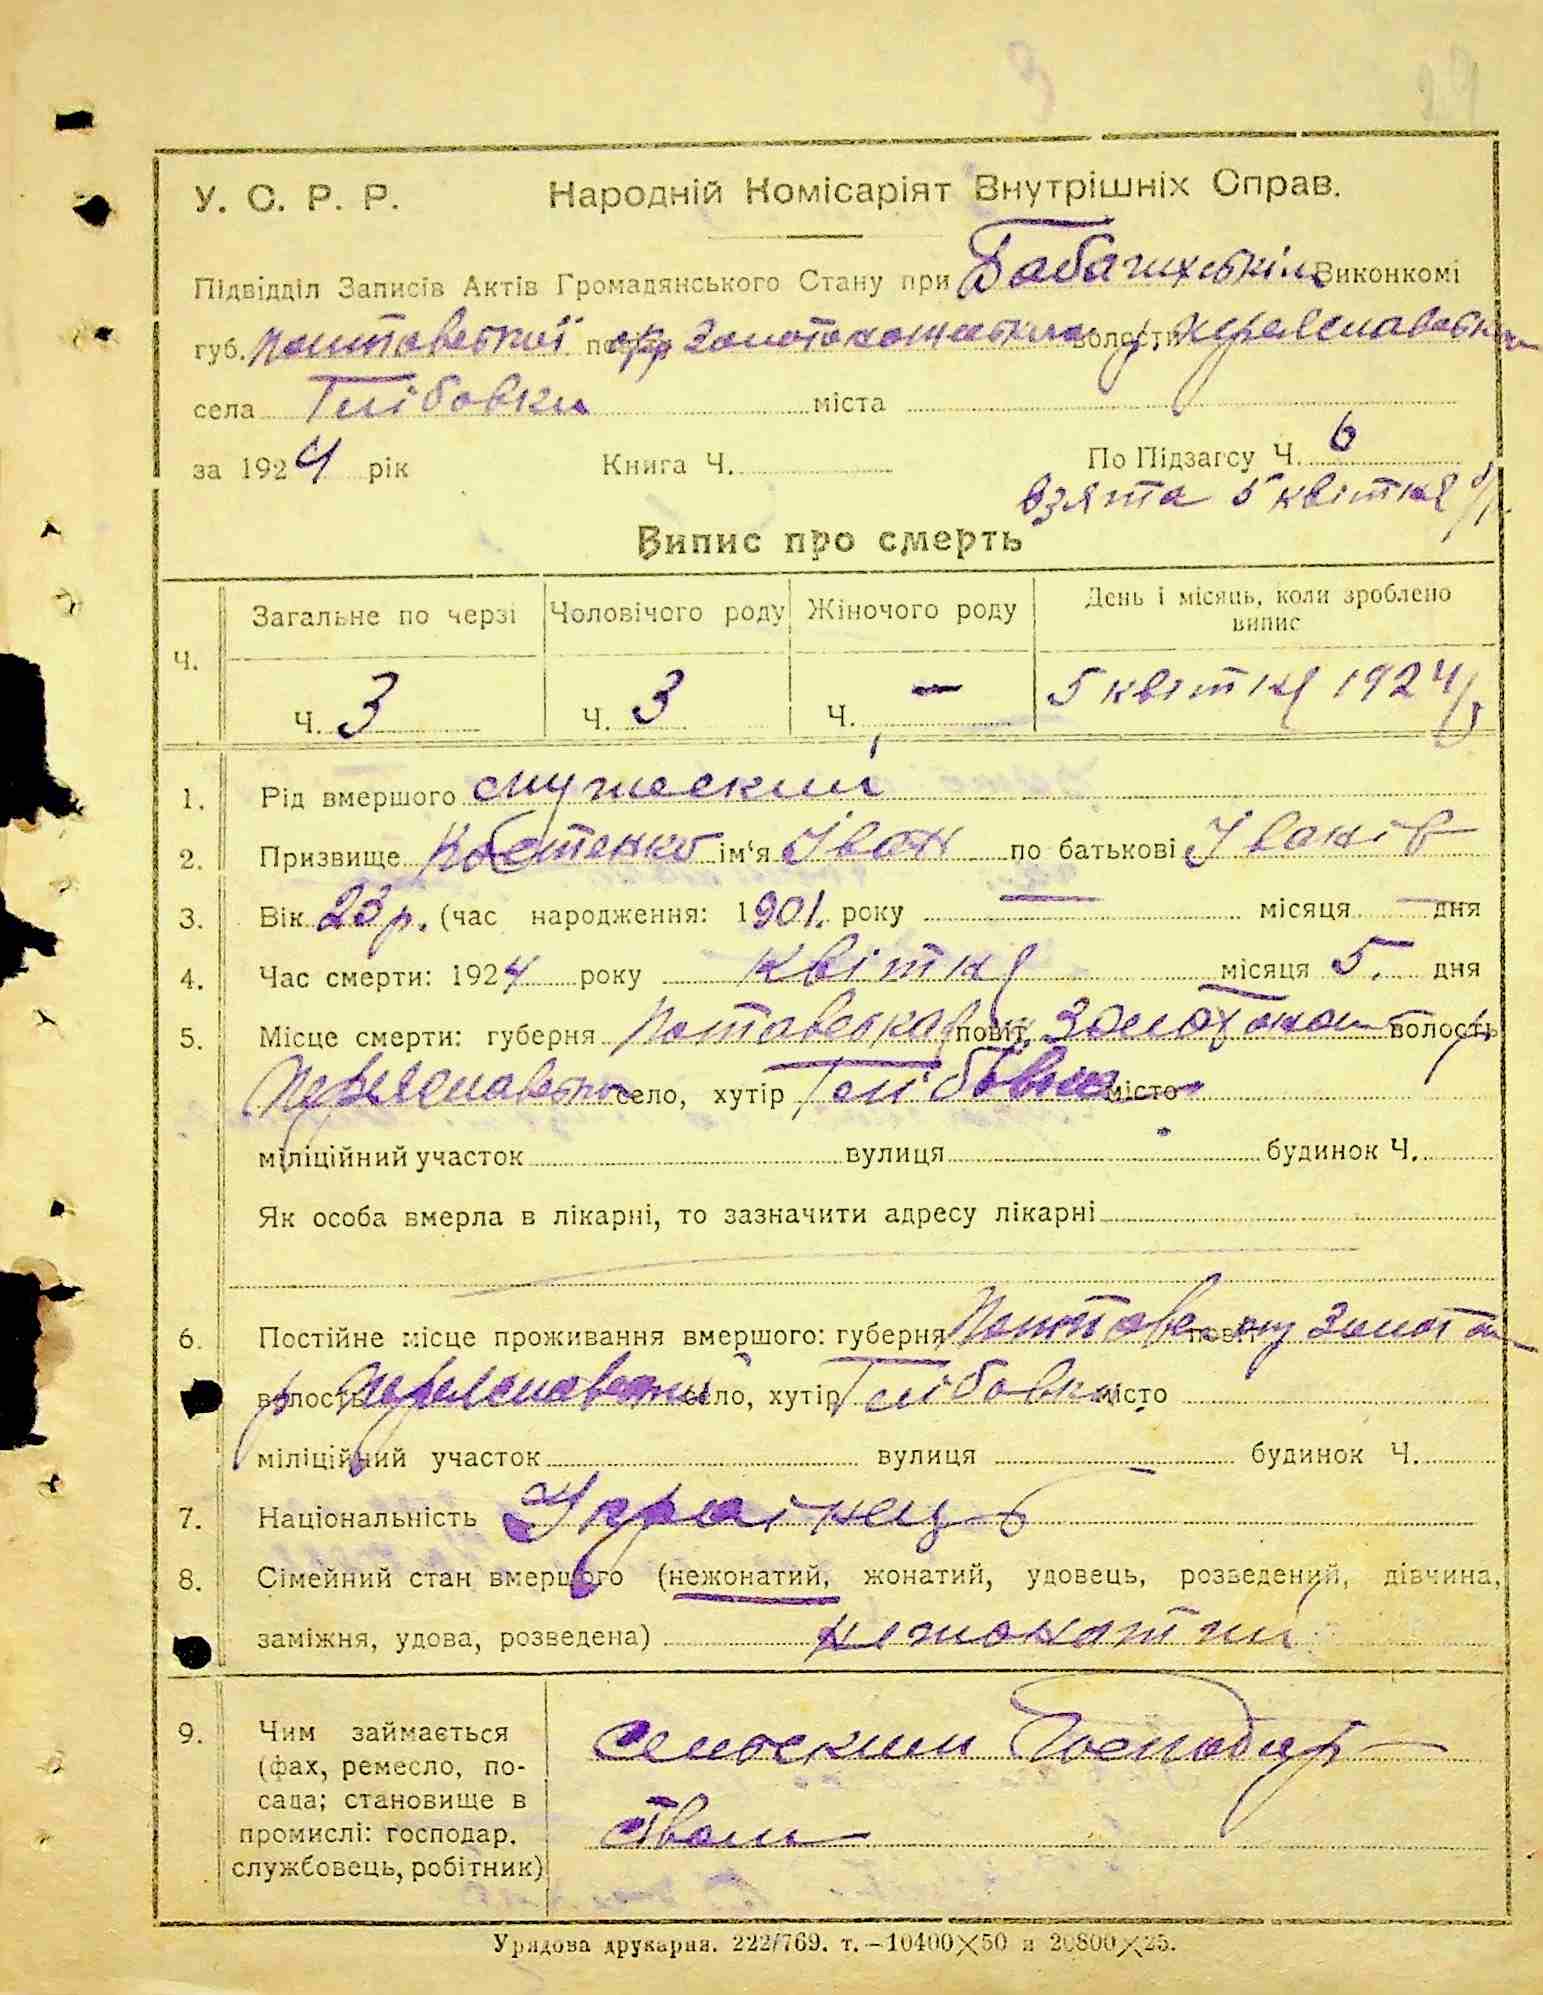 У. С. Р. Р. Народній Комісаріят Внутрішніх Справ.
Підвідділ Записів Актів Громадянського Стану при Бабачихскім Виконкомі
губ. Полтавської окр Золотоношської волости р Переяславський
села Глібовки міста
за 1924 рік Книга Ч. По Підзагсу Ч. 6
взята 5 квітня
Випис про смерть
Ч. Загальне по черзі Чоловічого роду Жіночого роду День і місяць, коли зроблено
випис
Ч. 3 Ч. 3 Ч. — 5 квітня 1924
1. Рід вмершого мужеский
2. Призвище Костенко ім'я Іван по батькові Іванів
3. Вік 23 р. (час народження: 1901. року — місяця — дня
4. Час смерти: 1924 року квітня місяця 5. дня
5. Місце смерти: губерня Полтавская повіт. Золотонош волость
Переяславск село, хутір Глібовка місто
міліційний участок вулиця будинок Ч.
Як особа вмерла в лікарні, то зазначити адресу лікарні
6. Постійне місце проживання вмершого: губерня Полтавс повіт Золотон
р волость Переяславский село, хутір Глібовка місто
міліційний участок вулиця будинок Ч.
7. Національність Українець
8. Сімейний стан вмершого (нежонатий, жонатий, удовець, розведений, дівчина,
заміжня, удова, розведена) нежонатий
9. Чим займається сельским господар-
(фах, ремесло, по- ством
сада; становище в
промислі: господар.
службовець, робітник)
Урядова друкарня. 222/769. т.—10400×50 и 20800×25.